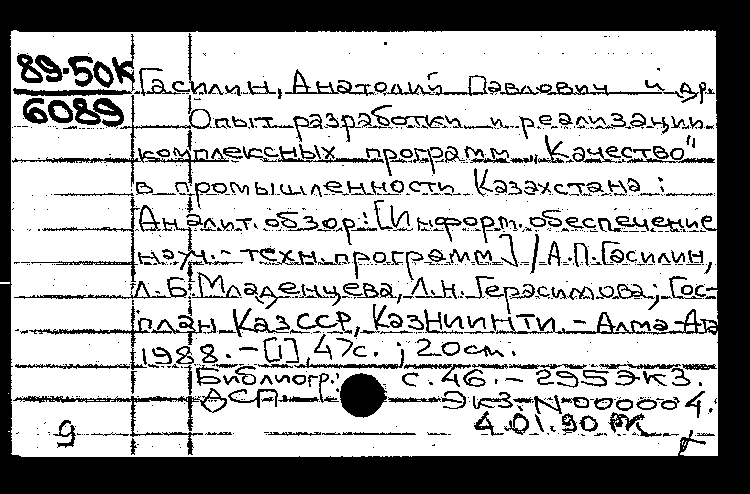 89-50К
6089
Гасилин, Анатолий Павлович и др.
Опыт разработки и реализации
комплексных программ „Качество"
в промышленности Казахстана:
Аналит. обзор: [Информ. обеспечение
науч.-техн. программ] / А.П. Гасилин,
Л.Б. Младенцева, Л.Н. Герасимова; Гос-
план КазССР, КазНИИНТИ. - Алма-Ата
1988. - [1], 47с. ; 20см.
Библиогр.: с. 46. - 295экз.
ДСП. Экз. N 000004.
9 4.01.90